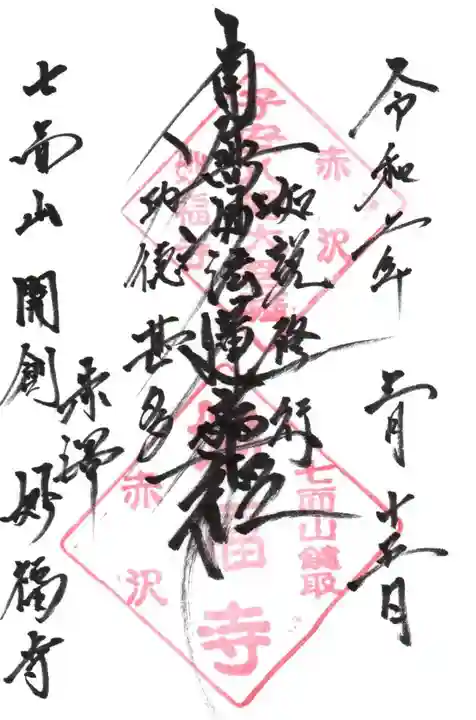 令和二年 月十五日
如説修行
南無妙法蓮華経
功徳甚多
七面山開創
赤沢 妙福寺
赤沢
妙福寺
七面山
妙福寺
赤沢